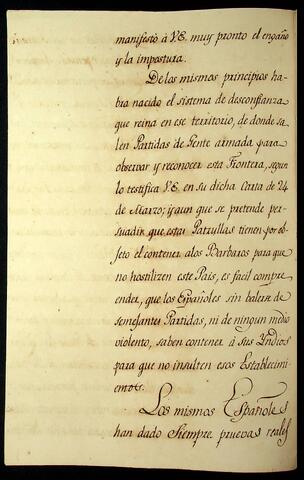 manifestò à V.E. muy pronto el engaño
y la impostura.
De los mismos principios ha-
bra nacido el sistema de desconfianza
que reina en ese territorio, de donde sa-
len Partidas de Gente armada para
observar y reconocer esta Frontera, segun
lo testifica V.E. en su dicha Carta de 24
de Marzo; i aun que se pretende per-
suadir que estas Patrullas tienen por ob-
jeto el contener alos Barbaros para que
no hostilizen este Pais, es facil compre-
ender, que los Españoles sin balerse de
semejantes Partidas, ni de ningun medio
violento, saben contener à sus Yndios
para que no insulten esos Establecimi-
entos.
Los mismos Españoles
han dado Siempre pruevas reales